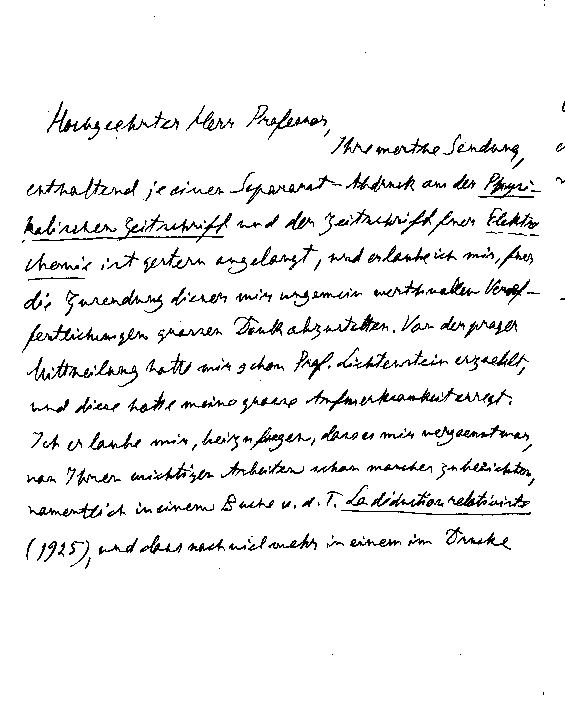 Hochgeehrter Herr Professor,
Ihre werthe Sendung,
enthaltend je einen Separat-Abdruck aus der Physi-
kalischen Zeitschrift und der Zeitschrift fuer Elektro
chemie ist gestern angelangt, und erlaube ich mir, fuer
die Zusendung dieser mir ungemein werthvollen Veroef-
fentlichungen grossen Dank abzustatten. Von der prager
Mittheilung hatte mir schon Prof. Lichtenstein erzaehlt,
und diese hatte meine grosse Aufmerksamkeit erregt.
Ich erlaube mir, beizufuegen, dass es mir vergoennt war,
von Ihren wichtigen Arbeiten schon manches zu berichten,
namentlich in einem Buche u. d. T. La déduction relativiste
(1925), und dass noch viel mehr in einem im Drucke